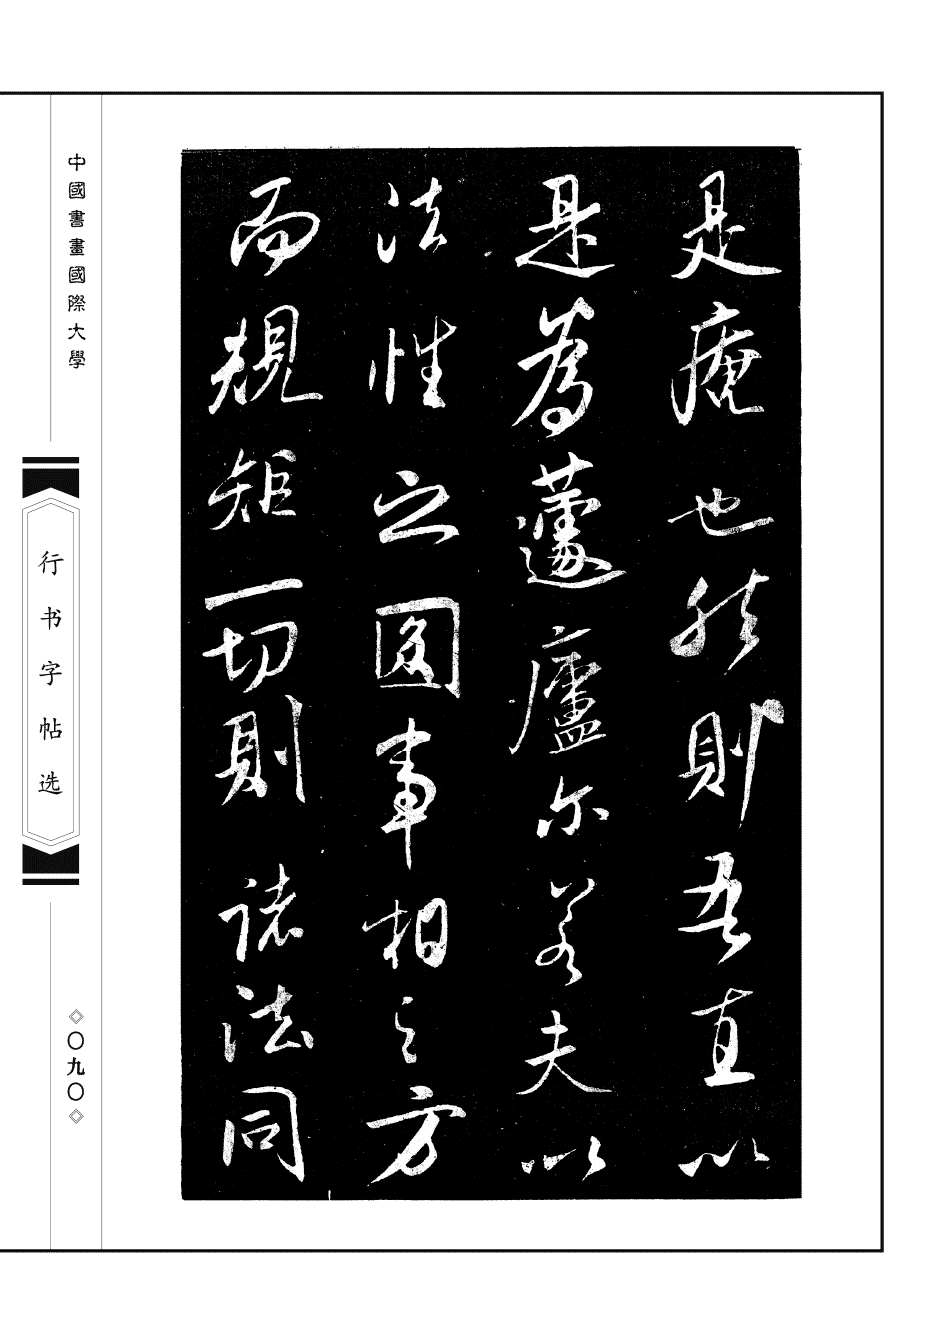 是庵也然則吾直以
是為蘧廬尔若夫以
法性之圓事相之方
而規矩一切則諸法同
中國書畫國際大學
行书字帖选
◇〇九〇◇